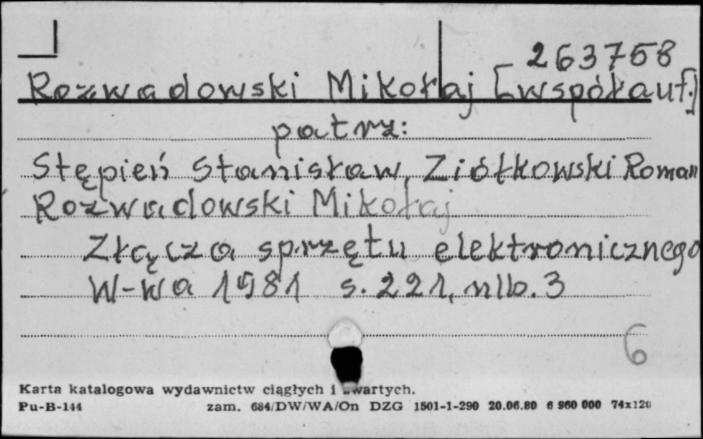 263758
Rozwadowski Mikołaj [współaut.]
patrz:
Stępień Stanisław, Ziółkowski Roman
Rozwadowski Mikołaj
Złącza sprzętu elektronicznego
W-wa 1981 s. 221, nlb. 3
6
Karta katalogowa wydawnictw ciągłych i zwartych.
Pu-B-144 zam. 684/DW/WA/On DZG 1501-1-290 20.06.80 6 960 000 74x120